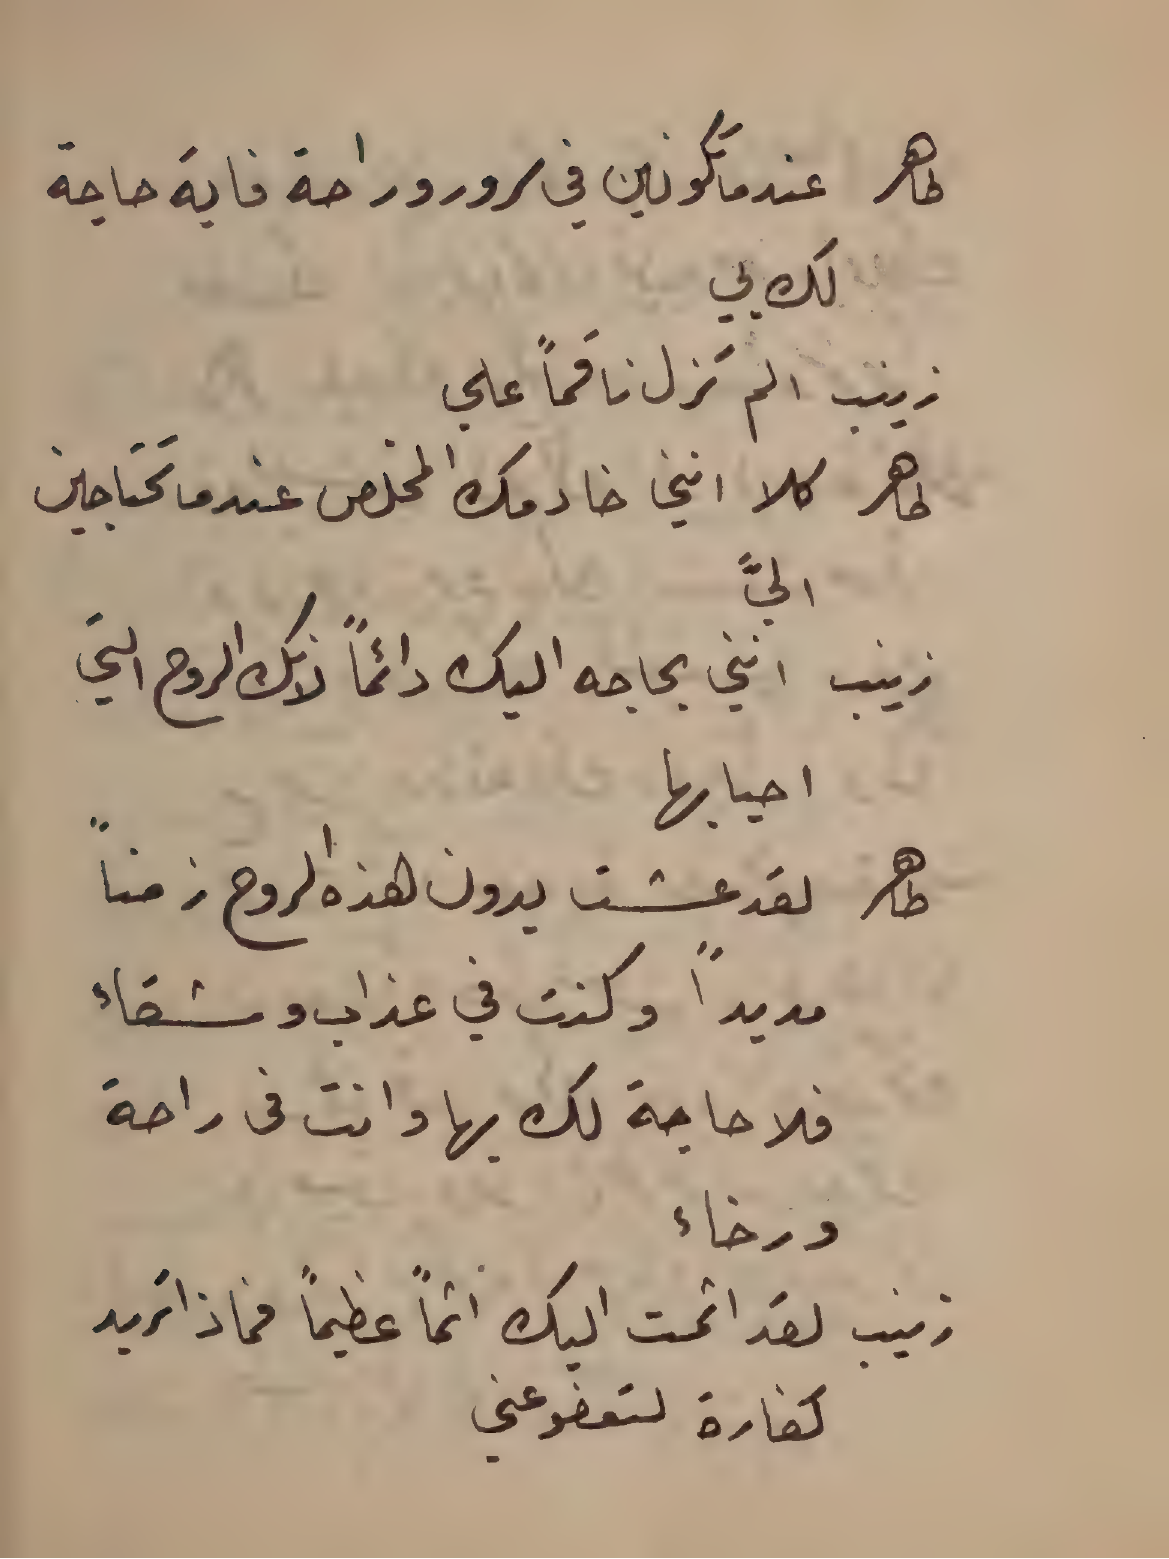 طاهر عندما تكونين في سرور وراحة فاية حاجة
لك بي
زينب الم تزل ناقماً علي
طاهر كلا انني خادمك المخلص عندما تحتاجين
اليَّ
زينب انني بحاجه اليك دائماً لانك الروح التي
احيا بها
طاهر لقد عشت بدون هذه الروح زمناً
مديداً وكنت في عذاب وشقاء
فلا حاجة لك بها وانت في راحة
ورخاء
زينب لقد اثمت اليك اثماً عظيماً فماذا تريد
كفارة لتعفو عني